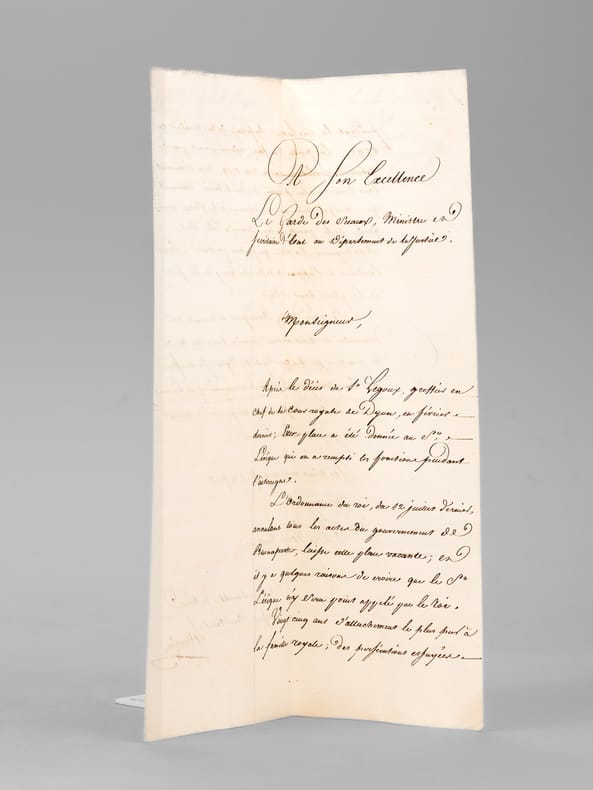 A Son Excellence
Le Garde des Sceaux, Ministre
Secrétaire d'État au Département de la Justice.
Monseigneur,
Après le décès du Sr Legoux, greffier en
chef de la Cour royale de Dijon, en février
dernier; cette place a été donnée au Sr
Lérique qui en a rempli les fonctions pendant
l'interrègne.
L'Ordonnance du roi, du 12 juillet dernier,
annulant tous les actes du gouvernement de
Buonaparte, laisse cette place vacante; et
il y a quelques raisons de croire que le Sr
Lérique n'y sera point appelé par le Roi.
Vingt cinq ans d'attachement le plus pur à
la famille royale; des persécutions essuyées